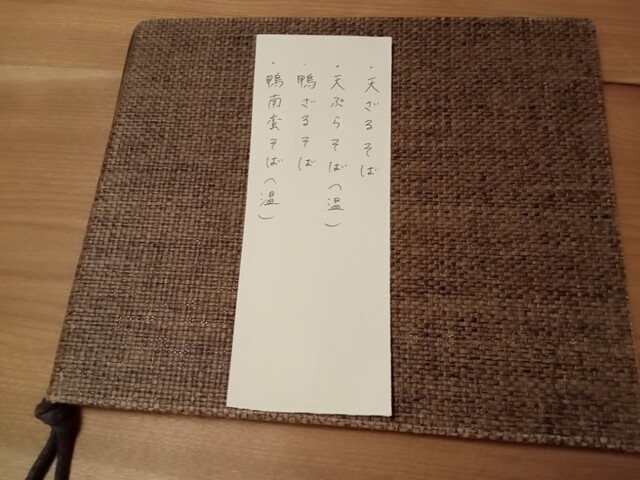 ・天ざるそば
・天ぷらそば(温)
・鴨ざるそば
・鴨南蛮そば(温)